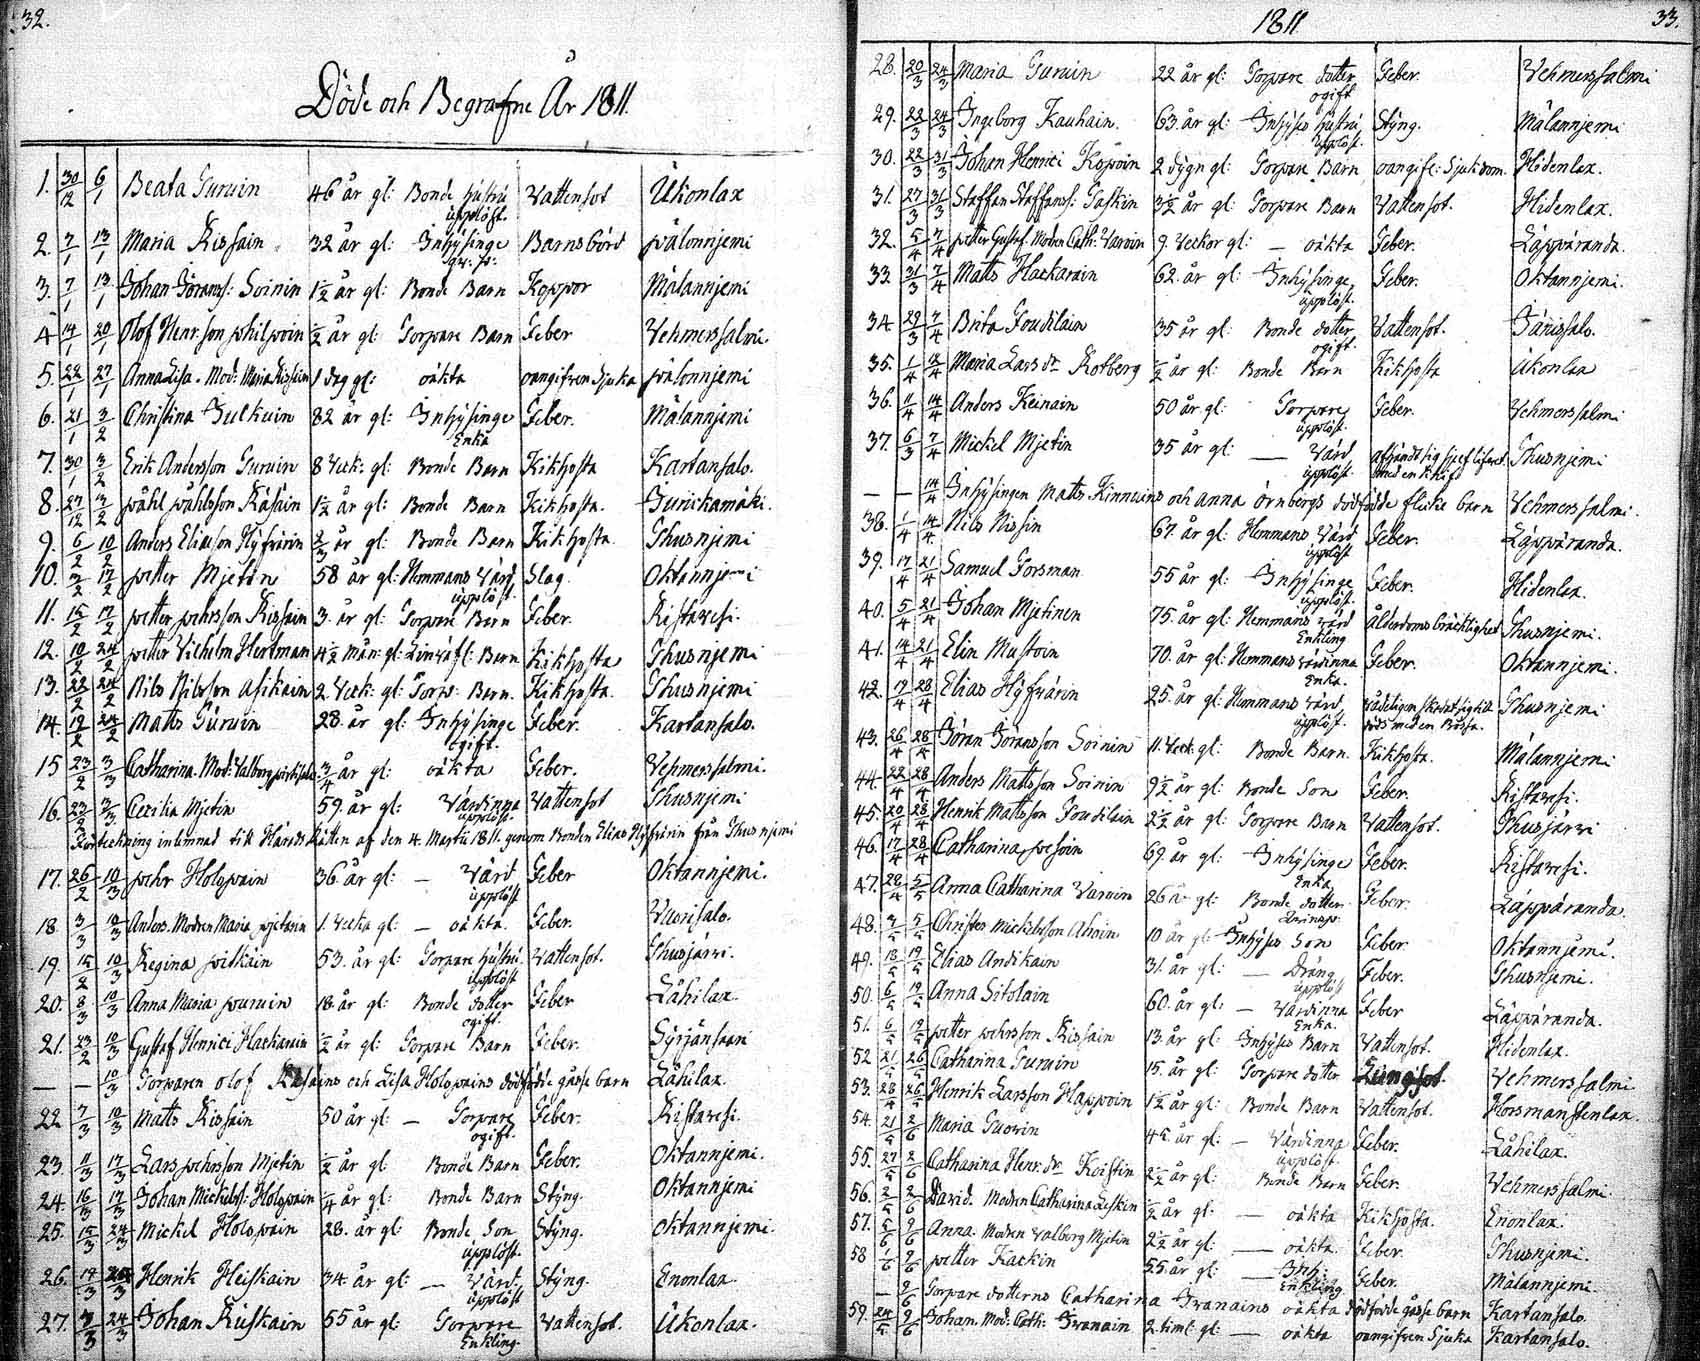 32.
Döde och Begrafne År 1811.
1. 30/12 6/1 Beata Guruin 46 år gl: Bonde hustru Vattensot Ukonlax
upplöst.
2. 7/1 13/1 Maria Kissain 32 år gl: Inhysinge Barnsbörd pålonnjemi
3. 7/1 13/1 Johan Göranss: Soinin 1½ år gl: Bonde Barn Koppor Målannjemi
4 14/1 20/1 Olof Henr:son philpoin ½ år gl: Torpare Barn Feber Vehmerssalmi.
5. 22/1 27/1 Anna Lisa. Mod: Maria Kissain 1 dag gl: oäkta oangifven Sjuka pålonnjemi
6. 21/1 3/2 Christina Julkuin 82 år gl: Inhysinge Feber. Målannjemi
Enka
7. 30/1 3/2 Erik Andersson Guruin 8 Veck: gl: Bonde Barn Kikhosta Kartansalo.
8. 27/12 3/2 påhl påhlsson Räsäin 1½ år gl: Bonde Barn Kikhosta. Jurickamäki.
9. 6/2 10/2 Anders Eliasson Hyfvärin 2/3 år gl: Bonde Barn Kikhosta. Ihusnjemi
10. 3/2 17/2 petter Mjetin 58 år gl: Hemmans Värd Slag. Oktannjemi
upplöst.
11. 15/2 17/2 petter pehrsson Kissain 3. år gl: Torpare Barn Feber. Ristavesi.
12. 10/2 24/2 petter Vilhelm Hertman 4½ mån: gl: Barn Kikhosta Ihusnjemi
13. 22/2 24/2 Nils Nilsson Asikain 2. Veck: gl: Torp: Barn. Kikhosta. Ihusnjemi
14. 19/2 24/2 Matts Guruin 28. år gl: Inhysinge Feber. Kartansalo.
ogift.
15 23/2 3/3 Catharina. Mod: Valborg 3/4 år gl: oäkta Feber. Vehmerssalmi.
16. 23/2 3/3 Cecilia Mjetin 59. år gl: Värdinna Vattensot Ihusnjemi
upplöst.
Förteckning inlemnad till Härads Rätten af den 4. Martii 1811. genom Bonden Elias Hyfvärin från Ihusnjemi
17. 26/2 10/3 pehr Holopain 36 år gl: — Värd Feber Oktannjemi.
upplöst
18 3/3 10/3 Anders. Modren Maria 1. Vecka gl: — oäkta. Feber. Vaorisalo.
19. 15/2 10/3 Regina pitkäin 53. år gl: Torpare hustru. Vattensot. Ihusjärvi.
upplöst
20. 8/3 10/3 Anna Maria paruin 18. år gl: Bonde dotter Feber Låhilax.
ogift.
21. 23/2 10/3 Gustaf Henrici Hackarain ½ år gl: Torpare Barn Feber. Syrjänsaari
— — 10/3 Torparen Olof Räsäins och Lisa Holopains dödfödde gosse barn Låhilax.
22 7/3 10/3 Matts Kissain 50 år gl: — Torpare Feber. Ristavesi.
ogift.
23. 11/3 17/3 Lars pehrsson Mjetin ½ år gl Bonde Barn Feber. Oktannjemi.
24. 16/3 17/3 Johan Michelss: Holopain ¼ år gl: Bonde Barn Styng. Oktannjemi
25. 15/3 24/3 Mickel Holopain 28. år gl: Bonde Son Styng. Oktannjemi.
upplöst.
26. 19/3 24/3 Henrik Heiskain 34. år gl: — Värd. Styng. Enonlax.
upplöst
27. 3/3 24/3 Johan Ruskain 55 år gl: Torpare Vattensot. Ukonlax.
Enkling.
1811
33.
28. 20/3 24/3 Maria Guruin 22 år gl: Torpare dotter Feber. Vehmerssalmi
ogift
29. 22/3 24/3 Ingeborg Kauhain. 63. år gl: Inhyses hustru Styng. Målannjemi
upplöst.
30. 22/3 31/3 Johan Henrici Kopoin 2 dygn gl: Torpare Barn oangifv: Sjukdom. Hidenlax.
31. 27/3 31/3 Staffan Staffanss: Taskin 3½ år gl: Torpare Barn Vattensot. Hidenlax.
32. 5/4 7/4 petter Gustaf. Modren Cath: Varoin 9. Veckor gl: — oäkta Feber. Läppäranda.
33. 31/3 7/4 Matts Hackarain 62. år gl: Inhysinge Feber. Oktannjemi.
upplöst.
34 29/3 7/4 Brita Foudilain 35 år gl: Bonde dotter Vattensot. Jänissalo.
ogift.
35. 1/4 14/4 Maria Lars dr Rotberg ½ år gl: Bonde Barn Kikhosta Ukonlax
36. 11/4 14/4 Anders Keinain 50 år gl: Torpare Feber. Vehmerssalmi
upplöst.
37. 6/3 7/4 Mickel Mjetin 35 år gl: — Värd Ihusnjemi
upplöst. med en Knif
— — 14/4 Inhysingen Matts Kinnuins och Anna Örnbergs dödfödde flicke barn Vehmerssalmi.
38. 1/4 14/4 Nils Nissin 67. år gl: Hemmans Värd Feber. Läppäranda.
upplöst
39. 17/4 21/4 Samuel Forsman 55 år gl: Inhysinge Feber. Hidenlax.
upplöst.
40. 5/4 21/4 Johan Mjetinen 75. år gl: Hemmans värd Ålderdoms bräcklighet Ihusnjemi.
Enkling
41. 14/4 21/4 Elin Mustoin 70. år gl: Hemmans värdinna Feber. Oktannjemi.
Enka.
42. 19/4 28/4 Elias Hyfvärin 25. år gl: Hemmans värd Ihusnjemi
upplöst. död med en Bössa.
43. 26/4 28/4 Göran Göransson Soinin 11. Veck: gl: Bonde Barn. Kikhosta. Målannjemi
44. 22/4 28/4 Anders Mattsson Soinin 9½ år gl: Bonde Son Feber. Ristavesi.
45. 20/4 28/4 Henrik Mattsson Foudilain 2½ år gl: Torpare Barn Vattensot. Ihusjärvi
46. 17/4 28/4 Catharina pesoin 69. år gl: Inhysinge Feber. Ristavesi.
Enka
47. 28/4 5/5 Anna Catharina Varoin 26 år Bonde dotter Feber. Läppäranda.
48. 3/5 5/5 Christer Mickelsson Ahoin 10 år gl: Inhyses Son Feber. Oktannjemi.
49. 13/5 19/5 Elias Andikain 31. år gl: — Dräng Feber. Ihusnjemi.
upplöst
50. 6/5 19/5 Anna Sitolain 60. år gl: — Värdinna Feber Läppäranda.
Enka.
51. 6/5 19/5 petter pehrsson Kissain 13. år gl: Inhyses Barn Vattensot. Hidenlax.
52 21/5 26/5 Catharina Guruin 15. år gl: Torpare dotter Lungsot. Vehmerssalmi
53. 28/4 26/5 Henrik Larsson Happoin 1½ år gl: Bonde Barn Vattensot. Horsmanstenlax.
54. 21/5 2/6 Maria Guovin 45. år gl: — Värdinna Feber. Låhilax.
upplöst.
55. 27/5 2/6 Catharina Henr: dr Keistin 2½ år gl: Bonde Barn Feber. Vehmerssalmi.
56. 2/5 2/6 David. Modren Catharina Leskin ½ år gl: — oäkta Kikhosta. Enonlax.
57. 5/6 9/6 Anna. Modren Valborg Mjetin 2½ år gl: — oäkta. Feber. Ihusnjemi.
58 1/6 9/6 petter Kackin 55. år gl: — Inh: Feber. Målannjemi.
Enkling
— 9/6 Torpare dotterns Catharina Iranains oäkta dödfödde gosse barn Kartansalo.
59. 24/5 9/6 Johan. Mod: Cath: Iranain 2. tim: gl: — oäkta oangifven Sjuka Kartansalo.